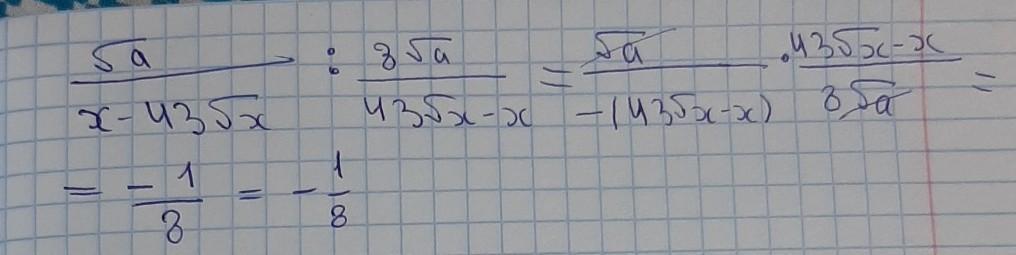 √a / (x - 43√x) : 8√a / (43√x - x) = √a / (-(43√x - x)) · (43√x - x) / (8√a) =
= -1 / 8 = - 1 / 8